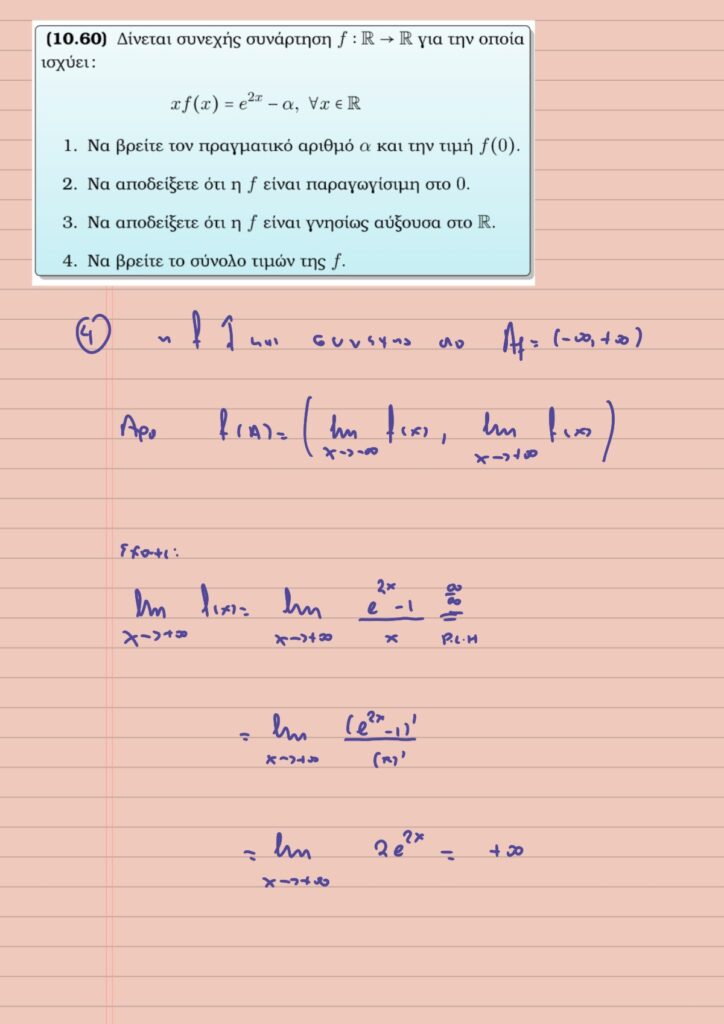 (10.60) Δίνεται συνεχής συνάρτηση f : ℝ → ℝ για την οποία
ισχύει:
xf(x) = e^{2x} − α, ∀x ∈ ℝ
1. Να βρείτε τον πραγματικό αριθμό α και την τιμή f(0).
2. Να αποδείξετε ότι η f είναι παραγωγίσιμη στο 0.
3. Να αποδείξετε ότι η f είναι γνησίως αύξουσα στο ℝ.
4. Να βρείτε το σύνολο τιμών της f.
④ η f ↑ και συνεχης στο A_f = (-∞, +∞)
Αρα f(A) = ( lim_{x→-∞} f(x), lim_{x→+∞} f(x) )
lim_{x→+∞} f(x) = lim_{x→+∞} (e^{2x} - 1)/x =^{∞/∞}_{D.L.H}
= lim_{x→+∞} (e^{2x} - 1)'/(x)'
= lim_{x→+∞} 2e^{2x} = +∞